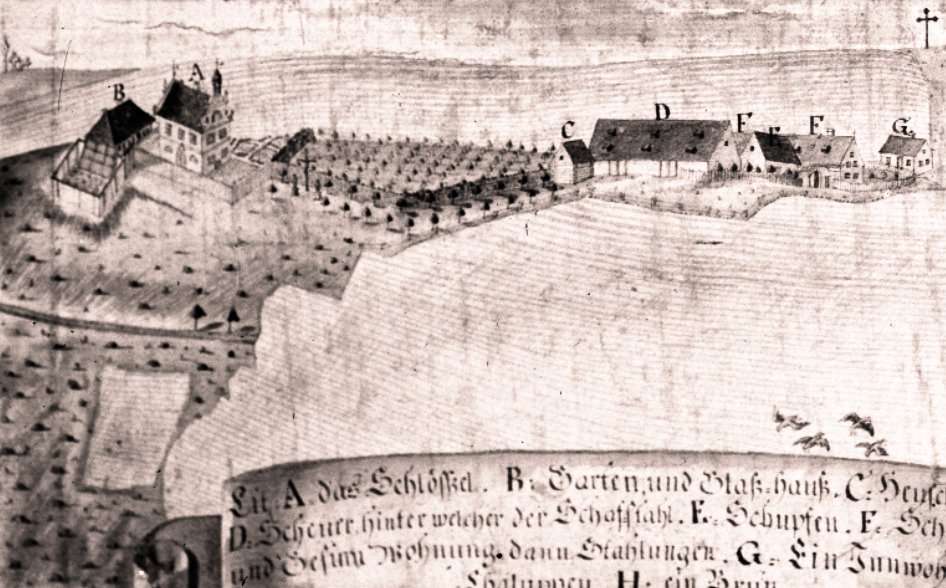 A
B
C
D
F
F
G
Lit: A. das Schlössel. B: Garten, und Glaß=hauß. C:
D. Scheuer, hinter welcher der Schafstahl. E: Schupfen. F:
und Gesind Wohnung, dann Stahlungen. G: Ein
Chaluppen. H: ein